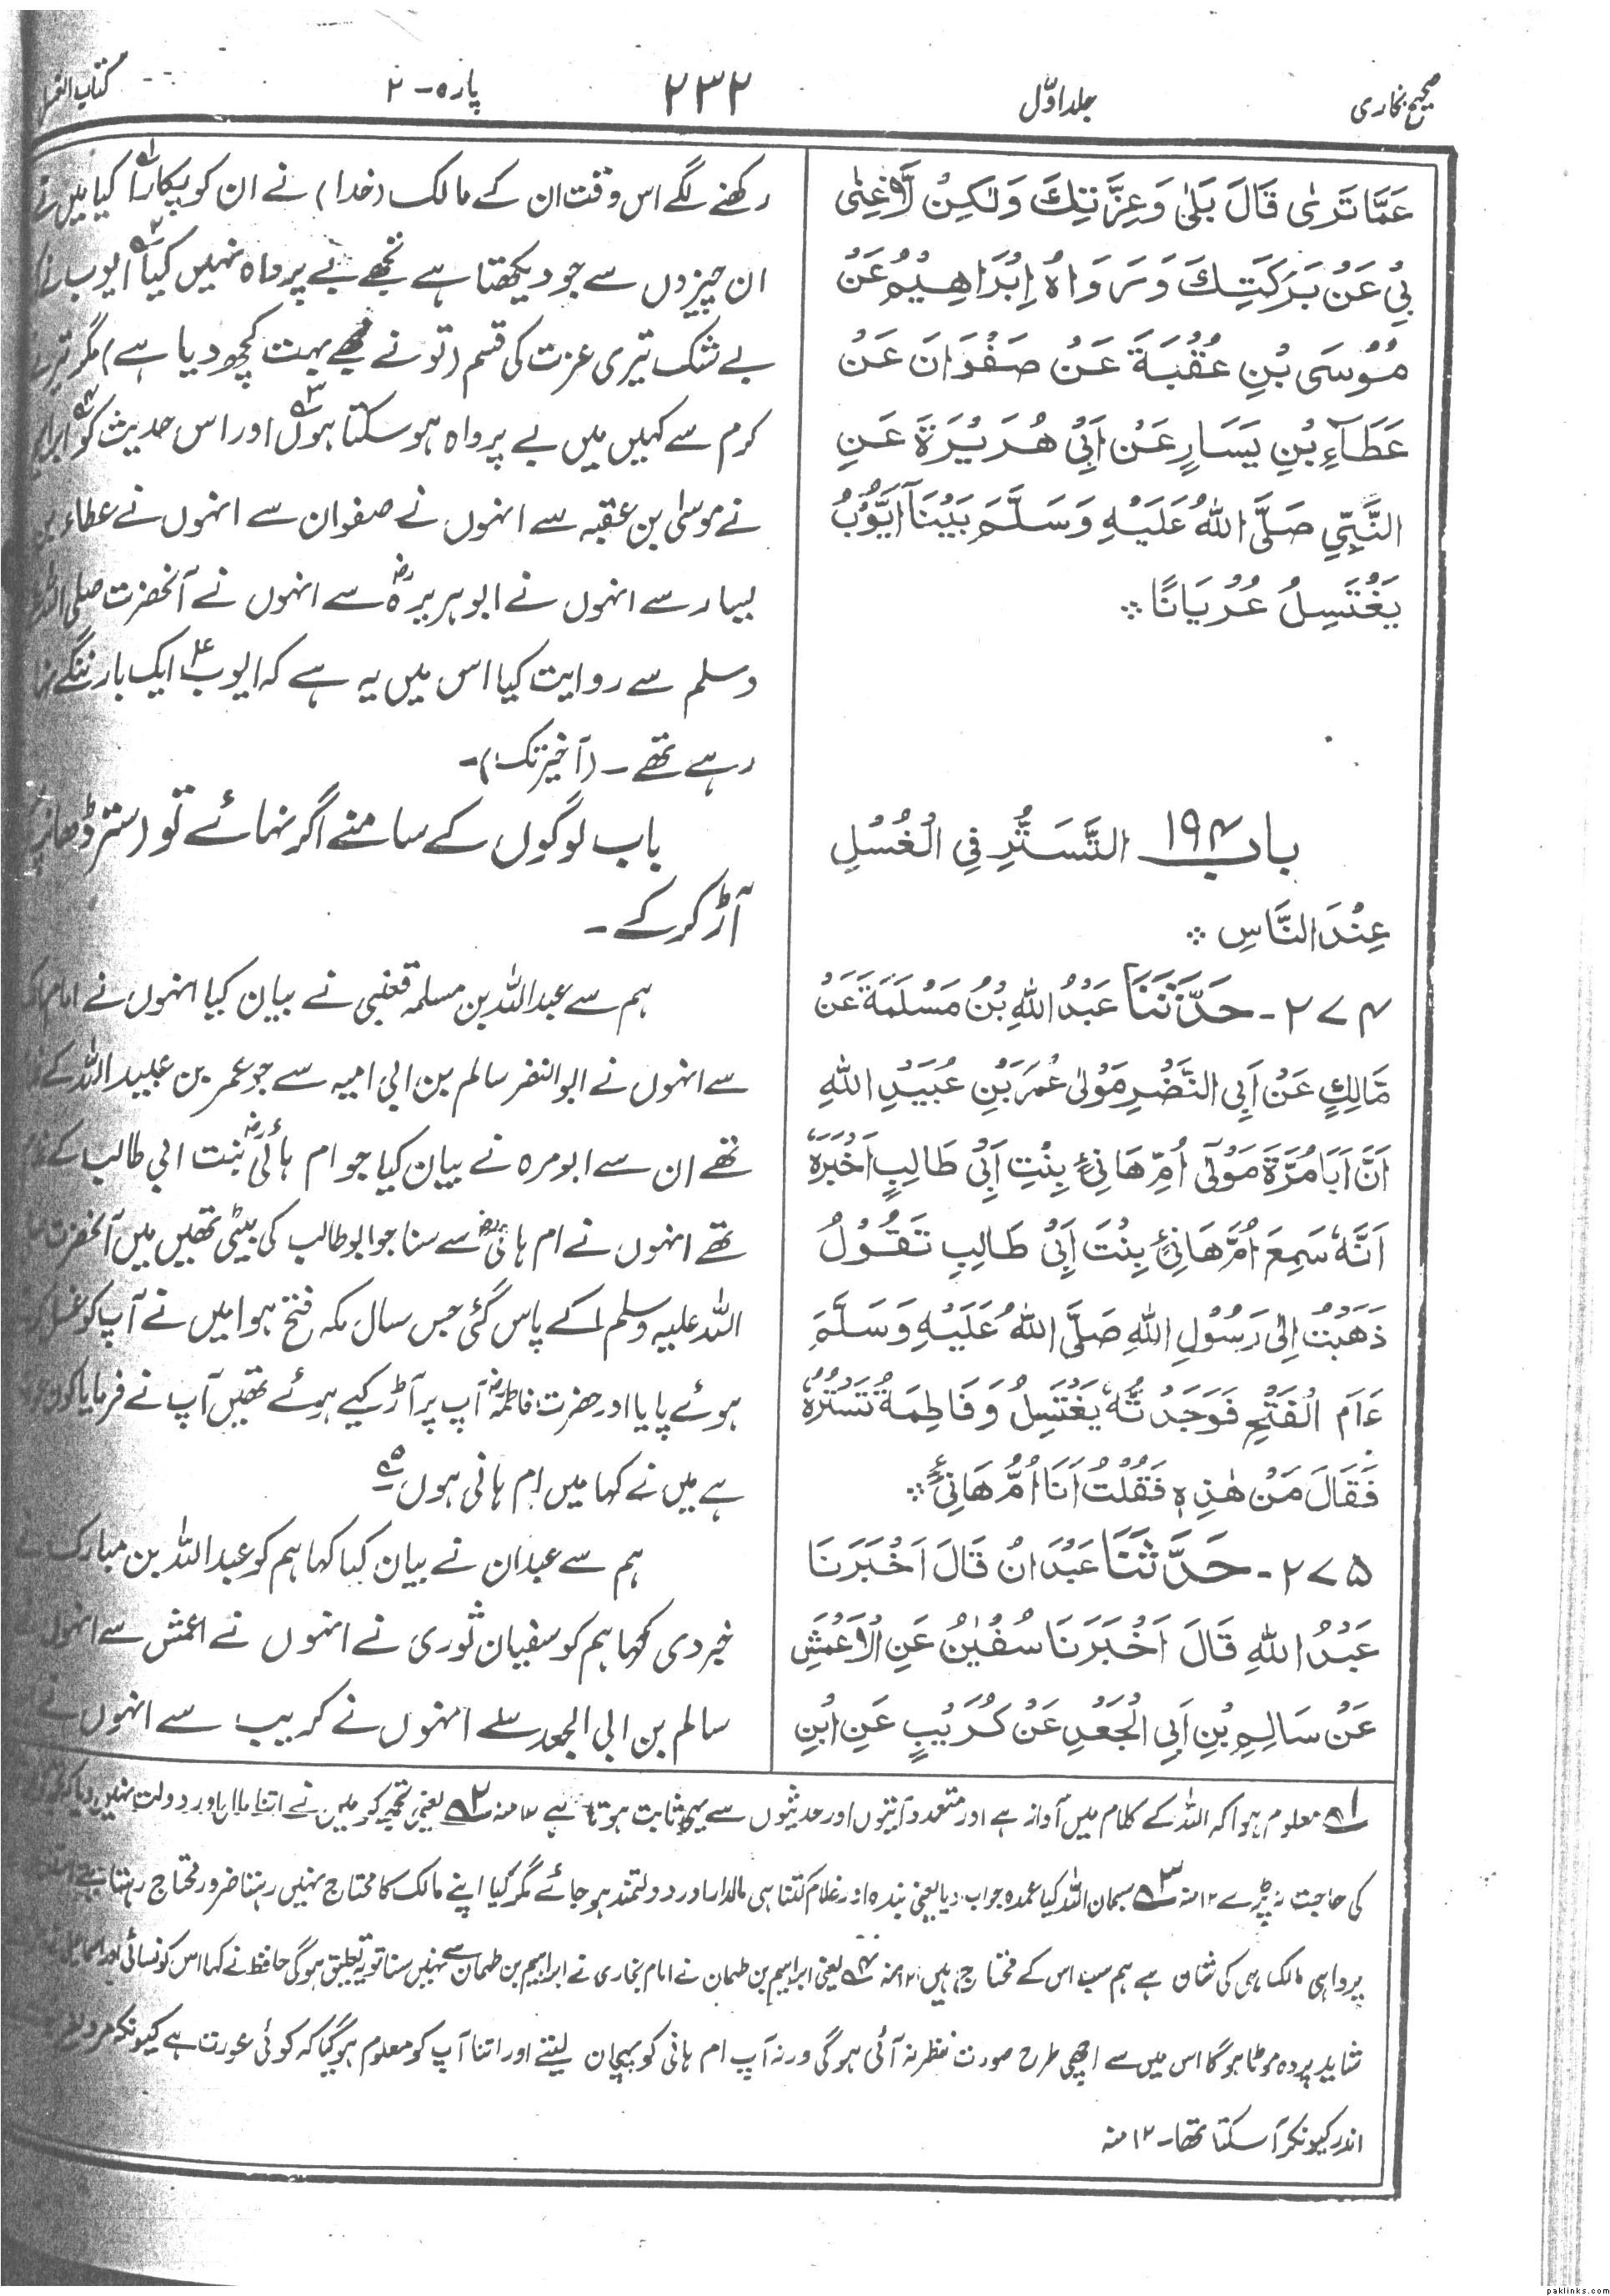 صحیح بخاری
جلد اوّل
۲۳۲
پارہ - ۲
کتاب الغسل
عَمَّا تَرٰى قَالَ بَلٰى وَعِزَّتِكَ وَلٰكِنْ لَّا غِنٰى
بِيْ عَنْ بَرَكَتِكَ وَرَوَاهُ إِبْرَاهِيْمُ عَنْ
مُوْسَى بْنِ عُقْبَةَ عَنْ صَفْوَانَ عَنْ
عَطَآءِ بْنِ يَسَارٍ عَنْ اَبِيْ هُرَيْرَةَ عَنِ
النَّبِيِّ صَلَّى اللهُ عَلَيْهِ وَسَلَّمَ بَيْنَآ اَيُّوْبُ
يَغْتَسِلُ عُرْيَانًا ؞
باب ۱۹۴ التَّسَتُّرِ فِي الْغُسْلِ
عِنْدَ النَّاسِ ؞
۲۷۴ - حَدَّثَنَا عَبْدُ اللهِ بْنُ مَسْلَمَةَ عَنْ
مَّالِكٍ عَنْ اَبِي النَّضْرِ مَوْلٰى عُمَرَ بْنِ عُبَيْدِ اللهِ
اَنَّ اَبَا مُرَّةَ مَوْلٰٓى اُمِّ هَانِئٍ بِنْتِ اَبِيْ طَالِبٍ اَخْبَرَهٗ
اَنَّهٗ سَمِعَ اُمَّ هَانِئٍ بِنْتَ اَبِيْ طَالِبٍ تَقُوْلُ
ذَهَبْتُ اِلٰى رَسُوْلِ اللهِ صَلَّى اللهُ عَلَيْهِ وَسَلَّمَ
عَامَ الْفَتْحِ فَوَجَدْتُّهٗ يَغْتَسِلُ وَفَاطِمَةُ تَسْتُرُهٗ
فَقَالَ مَنْ هٰذِهٖ فَقُلْتُ اَنَا اُمُّ هَانِئٍ ؞
۲۷۵ - حَدَّثَنَا عَبْدَانُ قَالَ اَخْبَرَنَا
عَبْدُ اللهِ قَالَ اَخْبَرَنَا سُفْيٰنُ عَنِ الْاَعْمَشِ
عَنْ سَالِمِ بْنِ اَبِي الْجَعْدِ عَنْ كُرَيْبٍ عَنِ ابْنِ
رکھنے لگے اس وقت ان کے مالک (خدا) نے ان کو پکارا۱ کیا میں نے
ان چیزوں سے جو دیکھتا ہے تجھے بے پرواہ نہیں کیا۲ ایوب نے
بے شک تیری عزت کی قسم (تو نے مجھے بہت کچھ دیا ہے) مگر تیرے
کرم سے کہیں میں بے پرواہ ہو سکتا ہوں۳ اور اس حدیث کو۴
نے موسیٰ بن عقبہ سے انہوں نے صفوان سے انہوں نے عطاء بن
یسار سے انہوں نے ابو ہریرہؓ سے انہوں نے آنحضرت صلی اللہ
وسلم سے روایت کیا اس میں یہ ہے کہ ایوبؑ ایک بار ننگے نہا
رہے تھے ۔ (آخیر تک) ۔
باب لوگوں کے سامنے اگر نہائے تو (ستر ڈھانپ
آڑ کر کے ۔
ہم سے عبد اللہ بن مسلمہ قعنبی نے بیان کیا انہوں نے امام
سے انہوں نے ابو النضر سالم بن ابی امیہ سے جو عمر بن عبید اللہ کے
تھے ان سے ابو مرہ نے بیان کیا جو ام ہانیؓ بنت ابی طالب کے
تھے انہوں نے ام ہانیؓ سے سنا جو ابو طالب کی بیٹی تھیں میں آنحضرت
اللہ علیہ وسلم کے پاس گئی جس سال مکہ فتح ہوا میں نے آپ کو غسل
ہوئے پایا اور حضرت فاطمہؓ آپ پر آڑ کیے ہوئے تھیں آپ نے فرمایا کون
ہے میں نے کہا میں ام ہانی ہوں۵
ہم سے عبدان نے بیان کیا کہا ہم کو عبد اللہ بن مبارک نے
خبر دی کہا ہم کو سفیان ثوری نے انہوں نے اعمش سے انہوں
سالم بن ابی الجعد سے انہوں نے کریب سے انہوں نے
۱ معلوم ہوا کہ اللہ کے کلام میں آواز ہے اور متعدد آیتوں اور حدیثوں سے یہی ثابت ہوتا ہے ۱۲ منہ ۲ یعنی تجھ کو میں نے اتنا مال اور دولت نہیں دیا
کی حاجت نہ پڑے ۱۲ منہ ۳ سبحان اللہ کیا عمدہ جواب دیا یعنی بندہ اور غلام کتنا ہی مالدار اور دولتمند ہو جائے مگر کیا اپنے مالک کا محتاج نہیں رہتا ضرور محتاج رہتا ہے
پرواہی مالک ہی کی شان ہے ہم سب اس کے محتاج ہیں ۱۲ منہ ۴ یعنی ابراہیم بن طہمان نے امام بخاری نے ابراہیم بن طہمان سے نہیں سنا تو یہ تعلیق ہوگی حافظ نے کہا اس کو نسائی اور
شاید پردہ موٹا ہوگا اس میں سے اچھی طرح صورت نظر نہ آئی ہوگی ورنہ آپ ام ہانی کو پہچان لیتے اور اتنا آپ کو معلوم ہو گیا کہ کوئی عورت ہے کیونکہ مرد
اندر کیونکر آ سکتا تھا ۔ ۱۲ منہ
paklinks.com